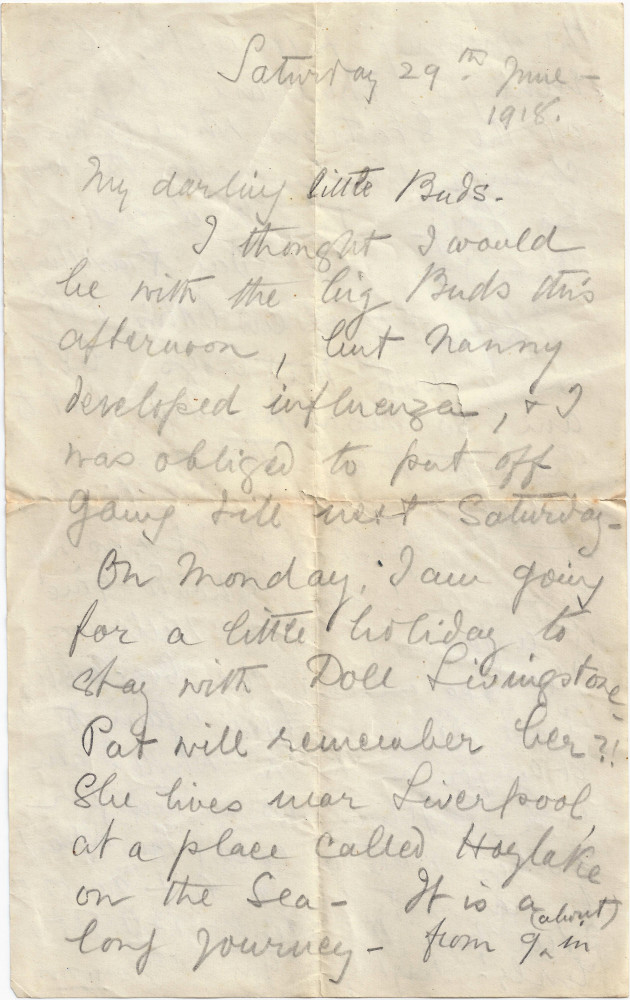 Saturday 29th June -
1918.
My darling little Buds.
I thought I would
be with the big Buds this
afternoon, but Nanny
developed influenza, & I
was obliged to put off
going till next Saturday -
On Monday, I am going
for a little holiday to
stay with Doll Livingstone -
Pat will remember her?!!
She lives near Liverpool,
at a place called Hoylake
on the Sea - It is a
long journey - from 9 (about) in